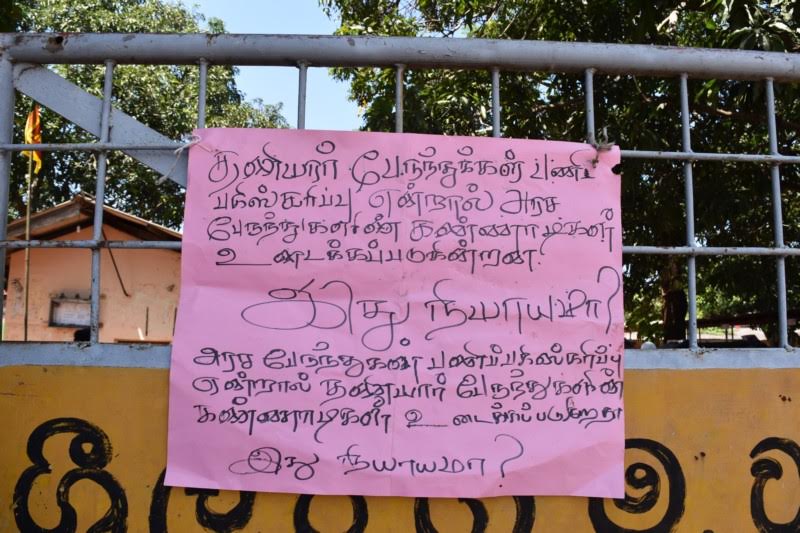 தனியார் பேருந்துக்கள் பணிப்
பகிஸ்கரிப்பு என்றால் அரச
பேருந்துகளின் கண்ணாடிகள்
உடைக்கப்படுகின்றன.
இது நியாயமா?
அரச பேருந்துகள் பணிப்பகிஸ்கரிப்பு
என்றால் தனியார் பேருந்துகளின்
கண்ணாடிகள்
இது நியாயமா?